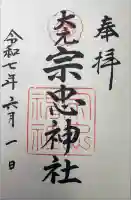 奉拝
大元
宗忠神社
令和七年六月一日